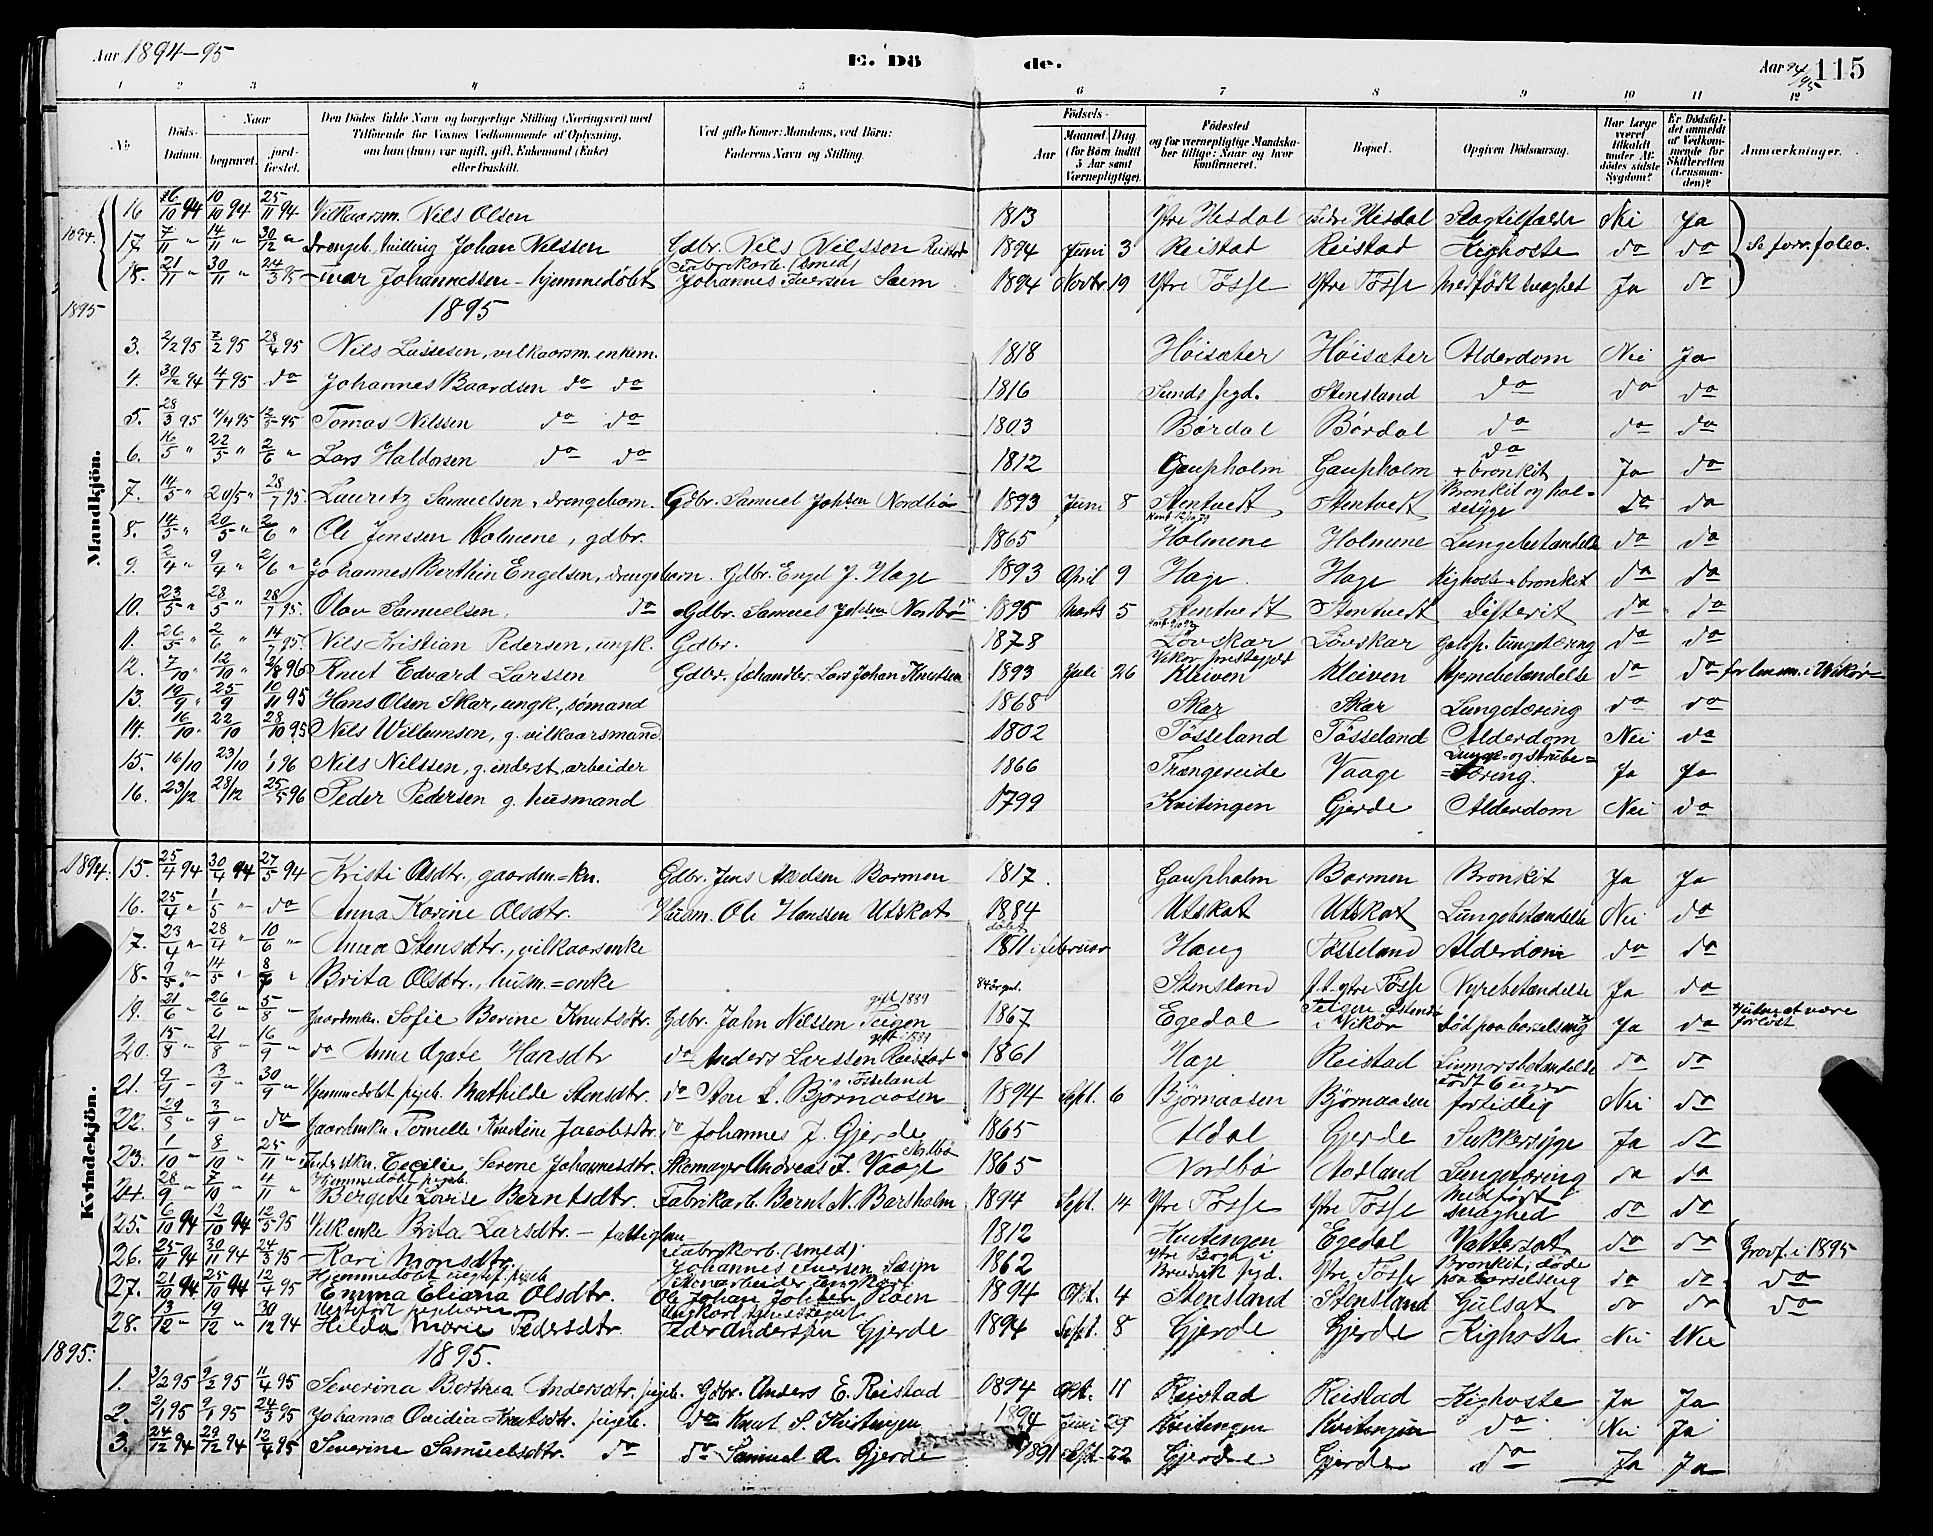 Aar 1894—95 E. Dö de. Aar 94/95 115
1 2 3 4 5 6 7 8 9 10 11 12
No. Döds-Datum. Naar begravet. jord-fæstet. Den Dödes fulde Navn og borgerlige Stilling (Næringsvei) med Tilföiende for Voxnes Vedkommende af Oplysning, om han (hun) var ugift, gift, Enkemand (Enke) eller fraskilt. Ved gifte Koner: Mandens, ved Börn: Faderens Navn og Stilling. Födsels- Aar Maaned Dag (for Börn indtil 5 Aar samt Værnepligtige). Födested og for værnepligtige Mandska-ber tillige: Naar og hvor konfirmeret. Bopæl. Opgiven Dödsaarsag. Har Læge været tilkaldt under Af-dödes sidste Sygdom? Er Dödsfal-det anmeldt af Vedkom-mende for Skifteretten (Lensman-den)? Anmærkninger.
Mandkjön.
1894. 16 10/10 94 25/11 94 Vilkaarsm. Nils Olsen 1813 Ytre Hisdal Indre Hisdal Slagtilfælde Nei Ja
17. 7/11 " 14/11 " 30/12 " Drengeb. tvilling Johan Nilssen Gdbr. Nils Nilsson Reistad 1894 Juni 3 Reistad Reistad Kighoste do do Se forr. folio.
18. 21/11 " 30/11 " 24/3 95 Johannessen - hjemmedöbt Fabrikarb. (smed) Johannes Iversen Sæm 1894 Novbr. 19 Ytre Tösse Ytre Tösse Medfödt svaghet Ja do
1895 1895
3. 2/2 95 7/2 95 28/4 95 Nils Lassesen, vilkaarsm. enkem. 1818 Höisæter Höisæter Alderdom Nei Ja
4. 30/12 94 4/1 95 do Johannes Baardsen do do 1816 Sunds sgd. Stensland do do do
5. 28/3 95 4/4 95 12/5 95 Tomas Nilssen do do 1803 Bördal Bördal do do do
6. 16/5 " 22/5 " 2/6 " Lars Haldorsen do do 1812 Gaupholm Gaupholm do + bronkit Ja do
7. 14/5 " 20/5 " 28/7 95. Lauritz Samuelsen, drengebarn. Gdbr. Samuel Johsen Nordbö 1893 Juni 8 Stentvedt Stentvedt Bronkit og halssyge do do
8. 14/5 " 20/5 " 2/6 " Ole Jenssen Holmene, gdbr. 1865 Holmene Holmene Lungebetændelse do do
9. 2/4 " 9/4 " 2/6 " Johannes Berthin Engelsen, drengebarn. Gdbr. Engel J. Hage 1893 April 9 Hage Hage Kighoste + bronkit do do
10. 23/5 " 28/5 " 28/7 95. Olav Samuelsen, do Gdbr. Samuel Johsen Nordbö 1895 Marts 5 Stentvedt Stentvedt Difterit do do
11. 26/5 " 2/6 " 14/7 95. Nils Kristian Pedersen, ungk. Gdbr. 1878 Lövskar Lövskar Galop. lungetæring do do
12. 7/10 " 12/10 " 2/8 96 Knut Edvard Larssen Gdbr. fhandler. Lars Johan Knutsen 1893 Juli 26 Vikör prestegjeld Kleiven Kleiven Hjernebetændelse do do for lensm. i Vikör
13. 19/9 " 25/9 10/11 95 Hans Olsen Skar, ungk., sömand 1868 Skar Skar Lungetæring do do
14. 16/10. 22/10 28/10 95 Nils Willumsen, g. vilkaarsmand. 1802 Tösseland Tösseland Alderdom Nei do
15. 16/10 23/10 1/1 96 Nils Nilssen, g. inderst, arbeider 1866 Trængereide Vaage Lunge- og strube=tæring. Ja Ja
16. 23/12 28/12 25/5 96 Peder Pedersen g. husmand 1799 Kvitingen Gjerde Alderdom Nei do
Kvindekjön.
1894. 15. 25/4 94 30/4 94 27/5 94 Kristi Olsdtr., gaardm=kn. Gdbr. Jens Axelsen Barmen 1817. Gaupholm Barmen Bronkit Ja Ja
16. 25/4 " 1/5 " do Anna Karine Olsdtr. Husm. Ole Hanssen Utskot 1884 Utskot Utskot Lungebetændelse Nei do
17. 23/4 " 28/4 " 10/6 " Anna Stensdtr., vilkaarsenke döbt 1811 i februar Haug Tösseland Alderdom do do
18. 9/5 " 14/5 " 8/7 " Brita Olsdtr., husm.=enke 84 år gl. Stensland f.t. ytre Tösse Nyrebetændelse Ja do
19. 21/6 " 26/6 " 5/8 " Gaardmkn. Sofie Berine Knutsdtr. Gdbr. Jahn Nilssen Teigen gift 1889 1867 Egedal Teigen Östensö i Vikör Död paa barselseng Ja do
20. 15/8 " 21/8 " 16/9 " do Anna Agate Hansdtr do Anders Larssen Reistad 1861 Hage Reistad Livmorsbetændelse do do
21. 9/9 " 13/9 " 30/9 " Hjemmedöbt pigeb. Mathilde Stensdtr. do Sten L. Björnaasen 1894 Sept. 6 Björnaasen Björnaasen födt 6 uger fortidlig Nei do
22. 29/8 " 3/9 " do Gaardmkn. Pernelle Kristine Jacobsdtr. do Johannes J. Gjerde 1865 Aldal Gjerde Sukkersyge Ja do
23. 1/10 " 8/10 " 25/11 " Inderstkn. Cecilie Serene Johannesdtr. Skomager Andreas I. Vaage 1865 Nordbö Aadland Lungetæring do do
24. 28/9 " 7/10 " 4/11 " Hjemmedöbt pigeb. Bergitte Lovise Berntsdtr. Fabrikarb. Bernt N. Barsholm 1894 Sept. 14 Ytre Tösse Ytre Tösse Medfödt svaghed do do
25. 6/10 94 12/10 94 12/5 95 Vilk enke Brita Larsdtr. - fattiglem 1812 Kvitingen Egedal Vattersot do do Jordf. i 1895
26. 25/11 94 30/11 94 24/3 95 Kari Monsdtr. Fabrikarb. (smed) Johannes Iversen Sæm 1862 Ytre Bogh i Bruvik sgd. Ytre Tösse Bronkit, döde paa barselseng do do do
27. 21/10 94 25/10 94 12/4 95 Hjemmedöbt uegte pigeb. Emma Eliana Olsdtr. Stenarbeider, ungkarl. Ole Johan Roen 1894 Okt. 4 Stensland Stensland Gulsot do do do
28. 13/12 " 19/12 " 30/12 94 pigebarn Hilda Marie Pedersdtr. Peder Anderssen Gjerde 1894 Sept. 8 Gjerde Gjerde Kighoste Nei Nei
1895. 1895.
1. 3/2 95 9/2 95 11/4 95 Severina Berthea Andersdtr. pigeb. Gdbr. Anders E. Reistad 1894 Okt. 11 Reistad Reistad Kighoste Ja Ja
2. 2/1 95 9/1 95 24/3 95 Johanna Ovidia Knutsdtr. pigeb. do Knut S. Kvitingen 1894 Juni 29 Kvitingen Kvitingen do Nei Ja
3. 24/12 94 29/12 94 12/4 95 Severine Samuelsdtr. do do Samuel A. Gjerde 1891 Sept. 22 Gjerde Gjerde do Ja Ja